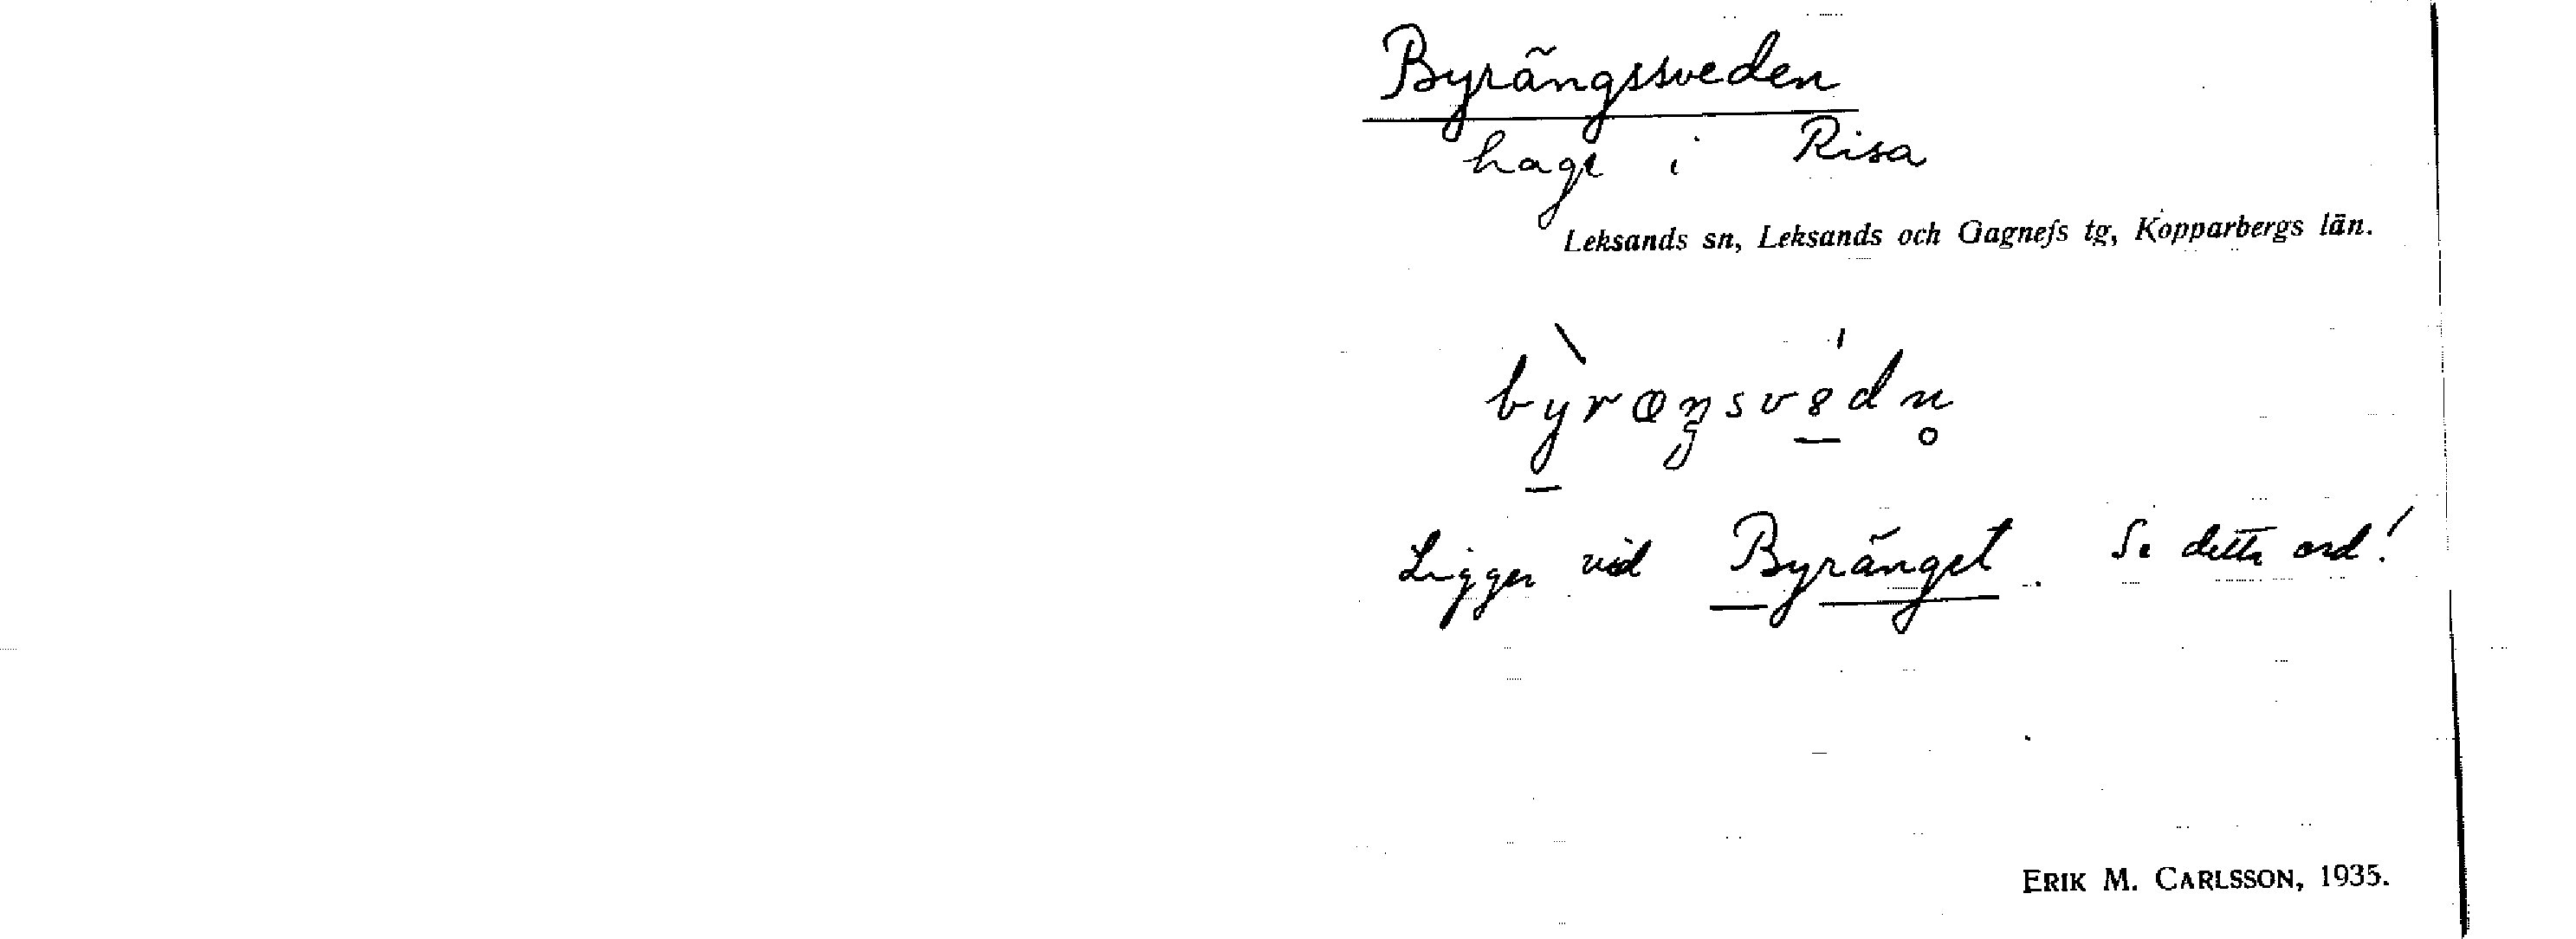 Byrängssveden
hage i Risa
Leksands sn, Leksands och Gagnefs tg, Kopparbergs län.
Ligger vid Byränget. Se detta ord!
ERIK M. CARLSSON, 1935.